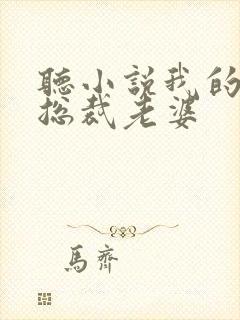 聽小說我的
總裁老婆
馬齊